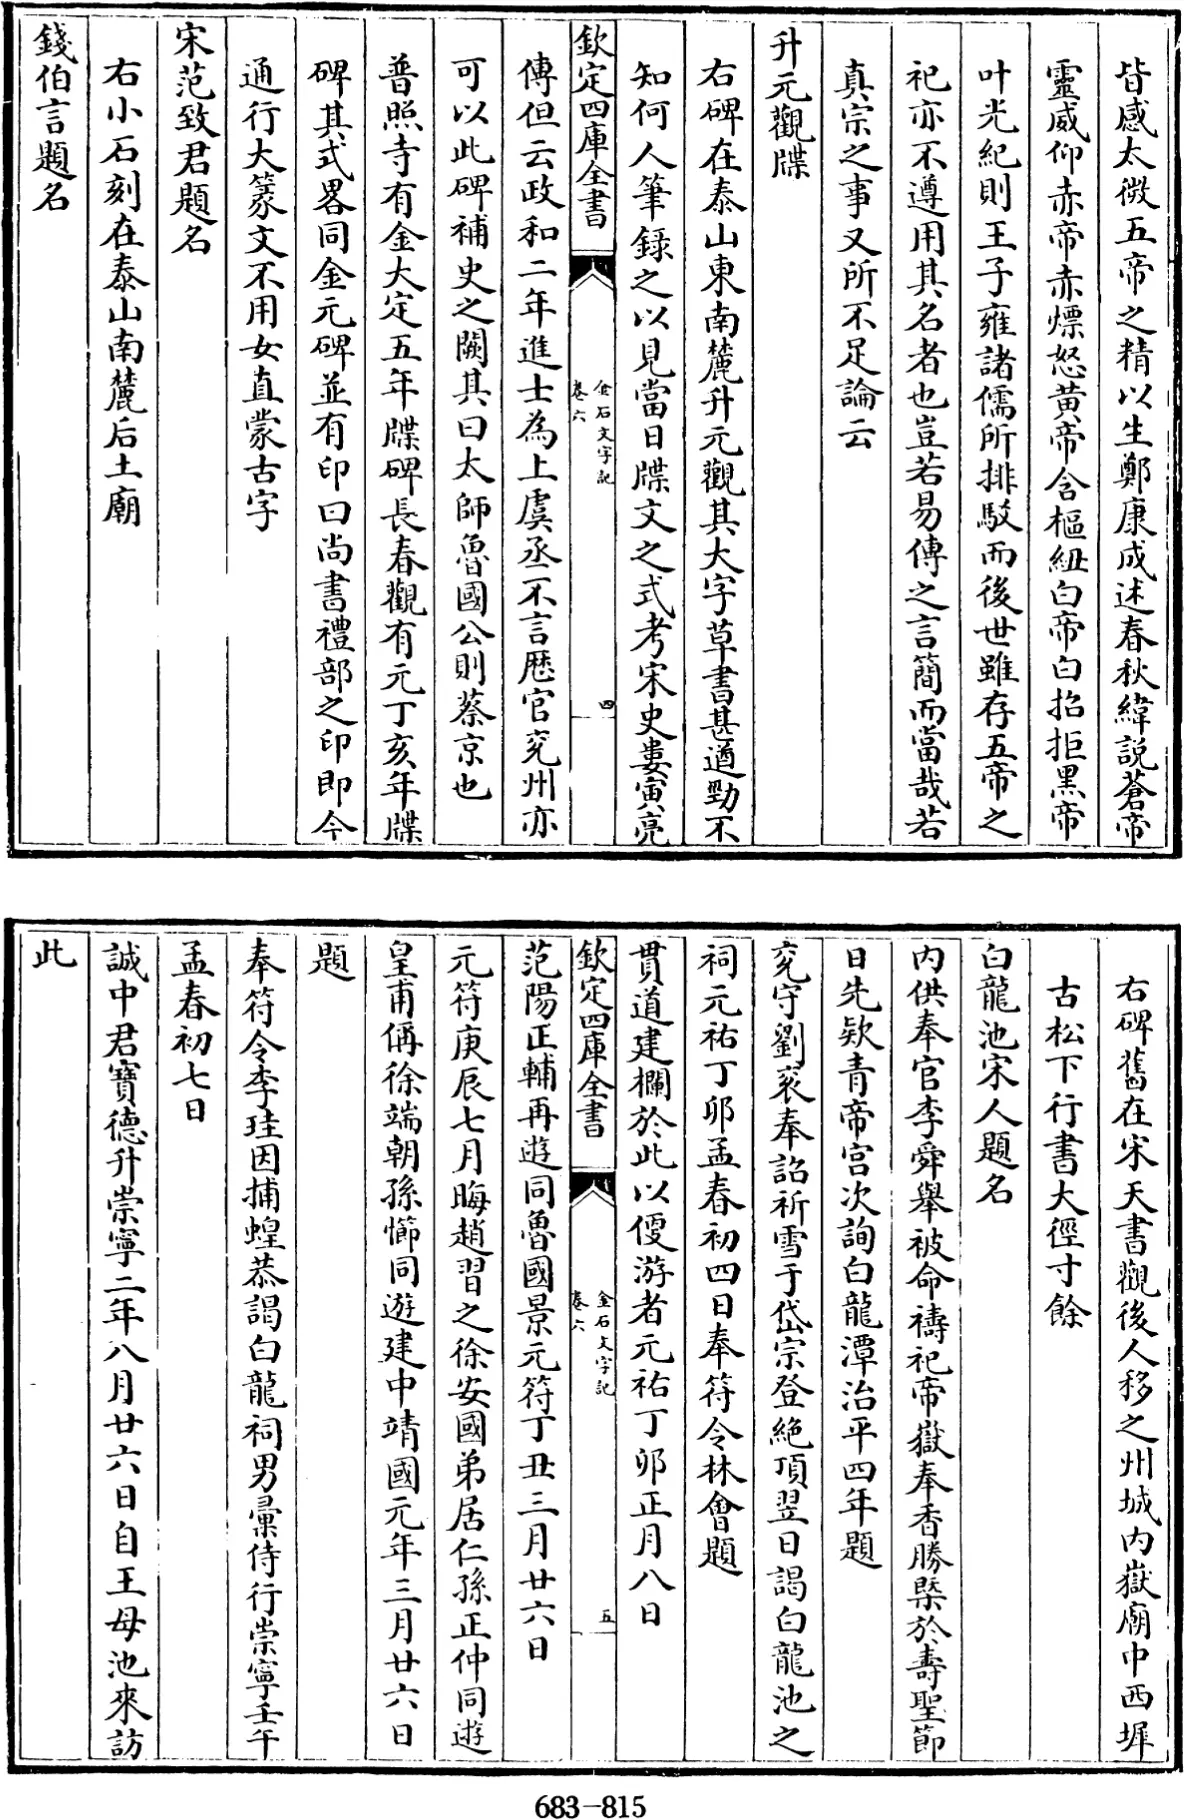 皆感太微五帝之精以生鄭康成述春秋緯説蒼帝
靈威仰赤帝赤熛怒黄帝含樞紐白帝白招拒黑帝
叶光紀則王子雍諸儒所排駁而後世雖存五帝之
祀亦不遵用其名者也豈若易傳之言簡而當哉若
真宗之事又所不足論云
升元觀牒
右碑在泰山東南麓升元觀其大字草書甚遒勁不
知何人筆錄之以見當日牒文之式考宋史婁寅亮
欽定四庫全書
金石文字記
卷六
四
傳但云政和二年進士為上虞丞不言歷官兖州亦
可以此碑補史之闕其曰太師魯國公則蔡京也
普照寺有金大定五年牒碑長春觀有元丁亥年牒
碑其式畧同金元碑並有印曰尚書禮部之印即今
通行大篆文不用女直蒙古字
宋范致君題名
右小石刻在泰山南麓后土廟
錢伯言題名
右碑舊在宋天書觀後人移之州城内嶽廟中西墀
古松下行書大徑寸餘
白龍池宋人題名
内供奉官李舜舉被命禱祀帝嶽奉香勝槩於壽聖節
日先欵青帝宫次詢白龍潭治平四年題
兖守劉衮奉詔祈雪于岱宗登絶頂翌日謁白龍池之
祠元祐丁卯孟春初四日奉符令林會題
貫道建欄於此以便游者元祐丁卯正月八日
欽定四庫全書
金石文字記
卷六
五
范陽正輔再遊同魯國景元符丁丑三月廿六日
元符庚辰七月晦趙習之徐安國弟居仁孫正仲同遊
皇甫偁徐端朝孫懤同遊建中靖國元年三月廿六日
題
奉符令李珪因捕蝗恭謁白龍祠男彚侍行崇寧壬午
孟春初七日
誠中君寶德升崇寧二年八月廿六日自王母池來訪
此
683-815